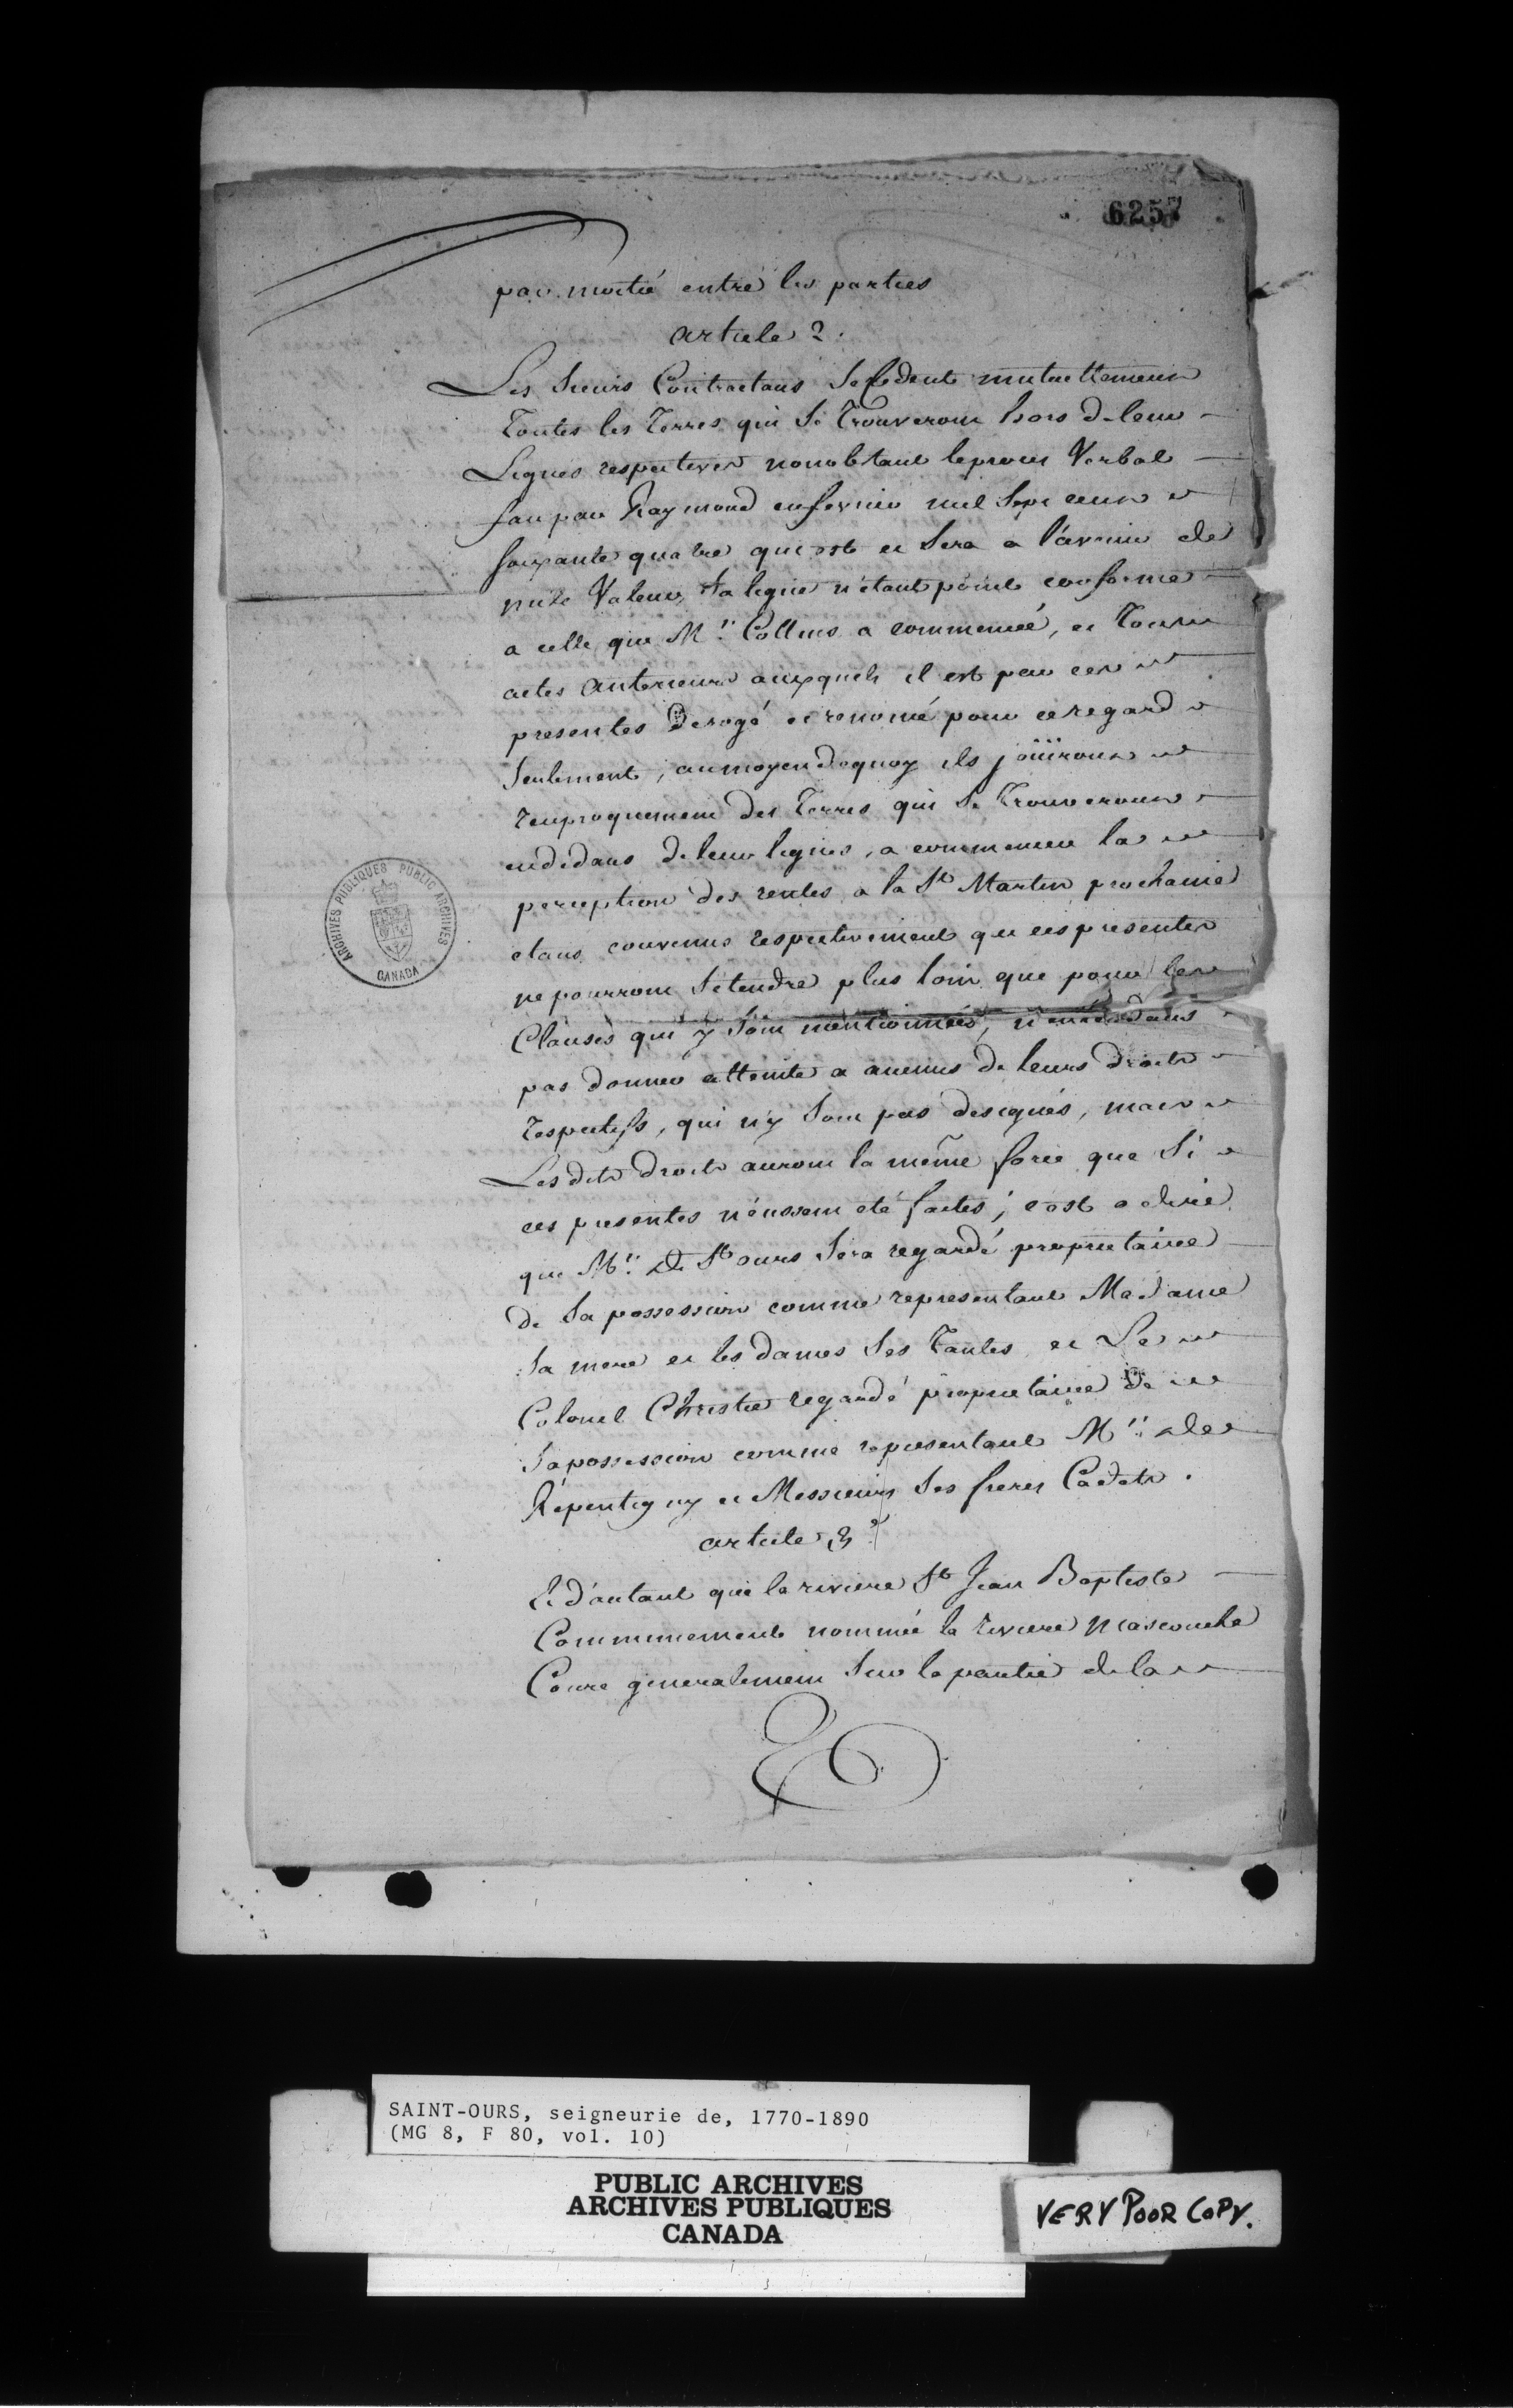 6257
par moitié entre les parties
article 2.
Les Sieurs Contractans Se Cedent mutuellement
Toutes les Terres qui Se Trouveront hors de leur
Lignes respectives nonobstant le procès Verbal
fait par Raymond en fevrier mil Sept cent
soixante quatre qui est et Sera a l'avenir de
nule Valeur, Sa ligne n'étant point conforme
a celle que Mr. Collins a commencé, et Tous
actes anterieurs auxquels il est par ces
presentes Derogé et renoncé pour ce regard
Seulement, au moyen de quoy ils joüiront
reciproquement des Terres qui Se Trouveront
en dedans de leur lignes, a commencer la
perception des rentes a la St Martin prochaine
etant convenus respectivement que ces presentes
ne pourront S'etendre plus loin que pour les
Clauses qui y Sont mentionnées, n'entendans
pas donner atteinte a aucuns de leurs droits
respectifs, qui n'y Sont pas designés, mais
Lesdits droits auront la même force que Si
ces presentes n'eussent été faites; c'est a dire
que Mr. De St ours Sera regardé proprietaire
de Sa possession comme representant Madame
Sa mere et les dames Ses Tantes et Le
Colonel Christie regardé proprietaire de
Sa possession comme representant Mr. de
Répentigny et Messieurs Ses freres Cadets.
article 3e
Et d'autant que la riviere St Jean Baptiste
Communement nommée la riviere Mascouche
Coure generalement Sur la partie de la
ARCHIVES PUBLIQUES PUBLIC ARCHIVES
CANADA
SAINT-OURS, seigneurie de, 1770-1890
(MG 8, F 80, vol. 10)
PUBLIC ARCHIVES
ARCHIVES PUBLIQUES
CANADA
VERY POOR COPY.